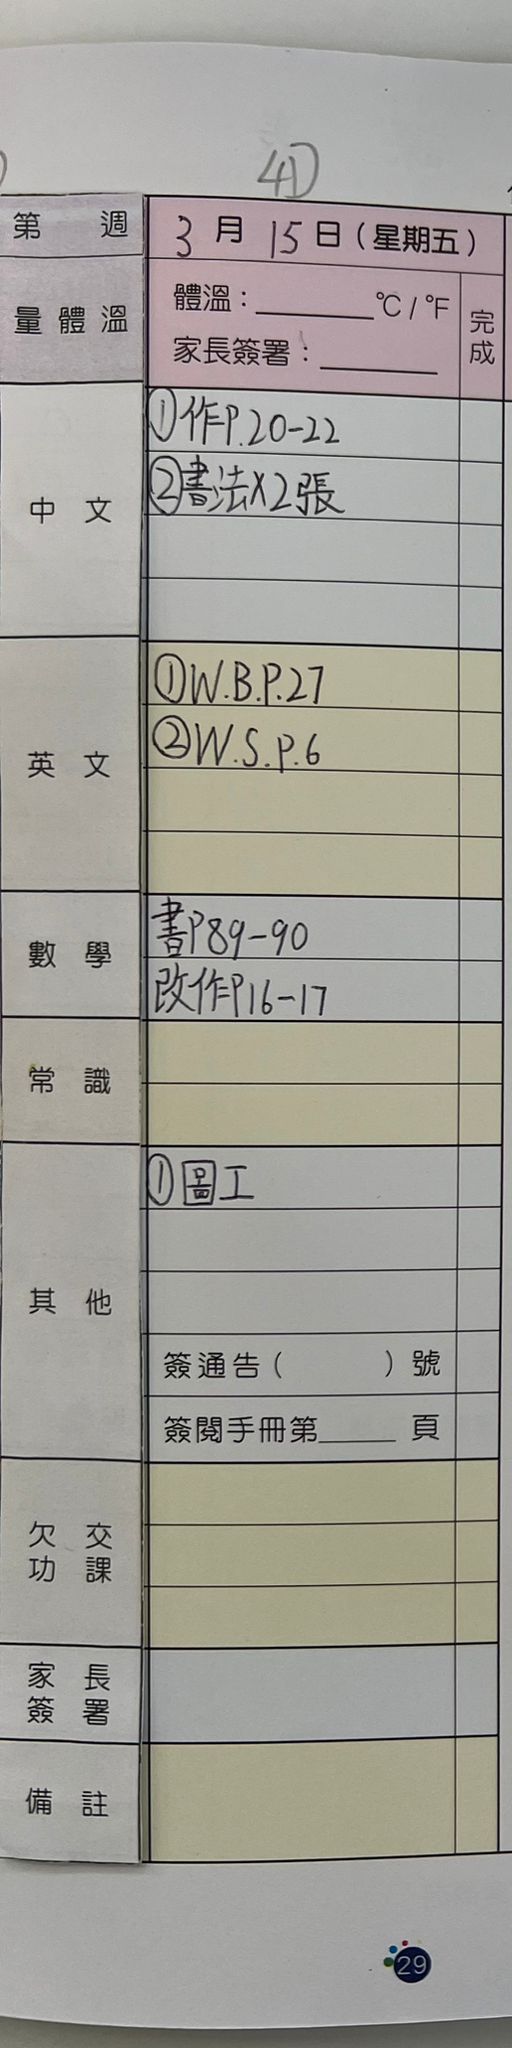 4D
第 週
3月15日(星期五)
量體溫
體溫:______°C/°F
家長簽署:______
完成
中文
①作P.20-22
②書法X2張
英文
①W.B.P.27
②W.S.P.6
數學
書P89-90
改作P16-17
常識
其他
①圖工
簽通告( )號
簽閱手冊第____頁
欠交
功課
家長
簽署
備註
29